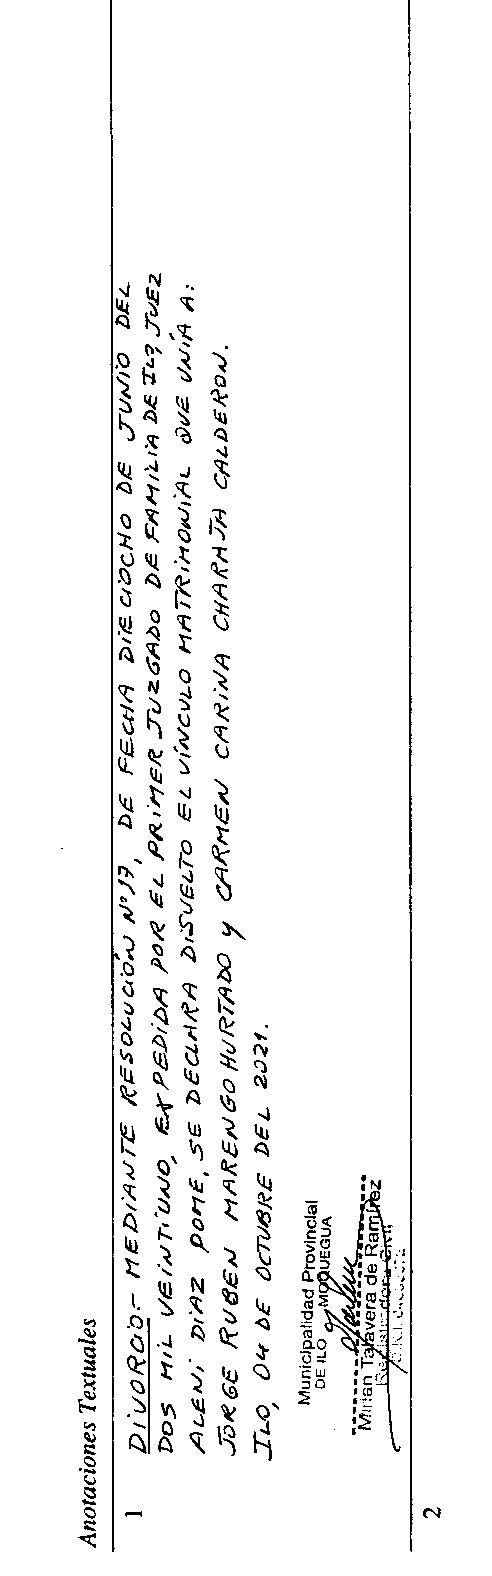 Anotaciones Textuales
1
DIVORCIO.- MEDIANTE RESOLUCIÓN N°17, DE FECHA DIECIOCHO DE JUNIO DEL
DOS MIL VEINTIUNO, EXPEDIDA POR EL PRIMER JUZGADO DE FAMILIA DE ILO, JUEZ
ALENI DIAZ POME, SE DECLARA DISUELTO EL VÍNCULO MATRIMONIAL QUE UNÍA A:
JORGE RUBEN MARENGO HURTADO Y CARMEN CARINA CHARAJA CALDERON.
ILO, 04 DE OCTUBRE DEL 2021.
Municipalidad Provincial
DE ILO MOQUEGUA
Mirian Talavera de Ramírez
Registradora Civil
2